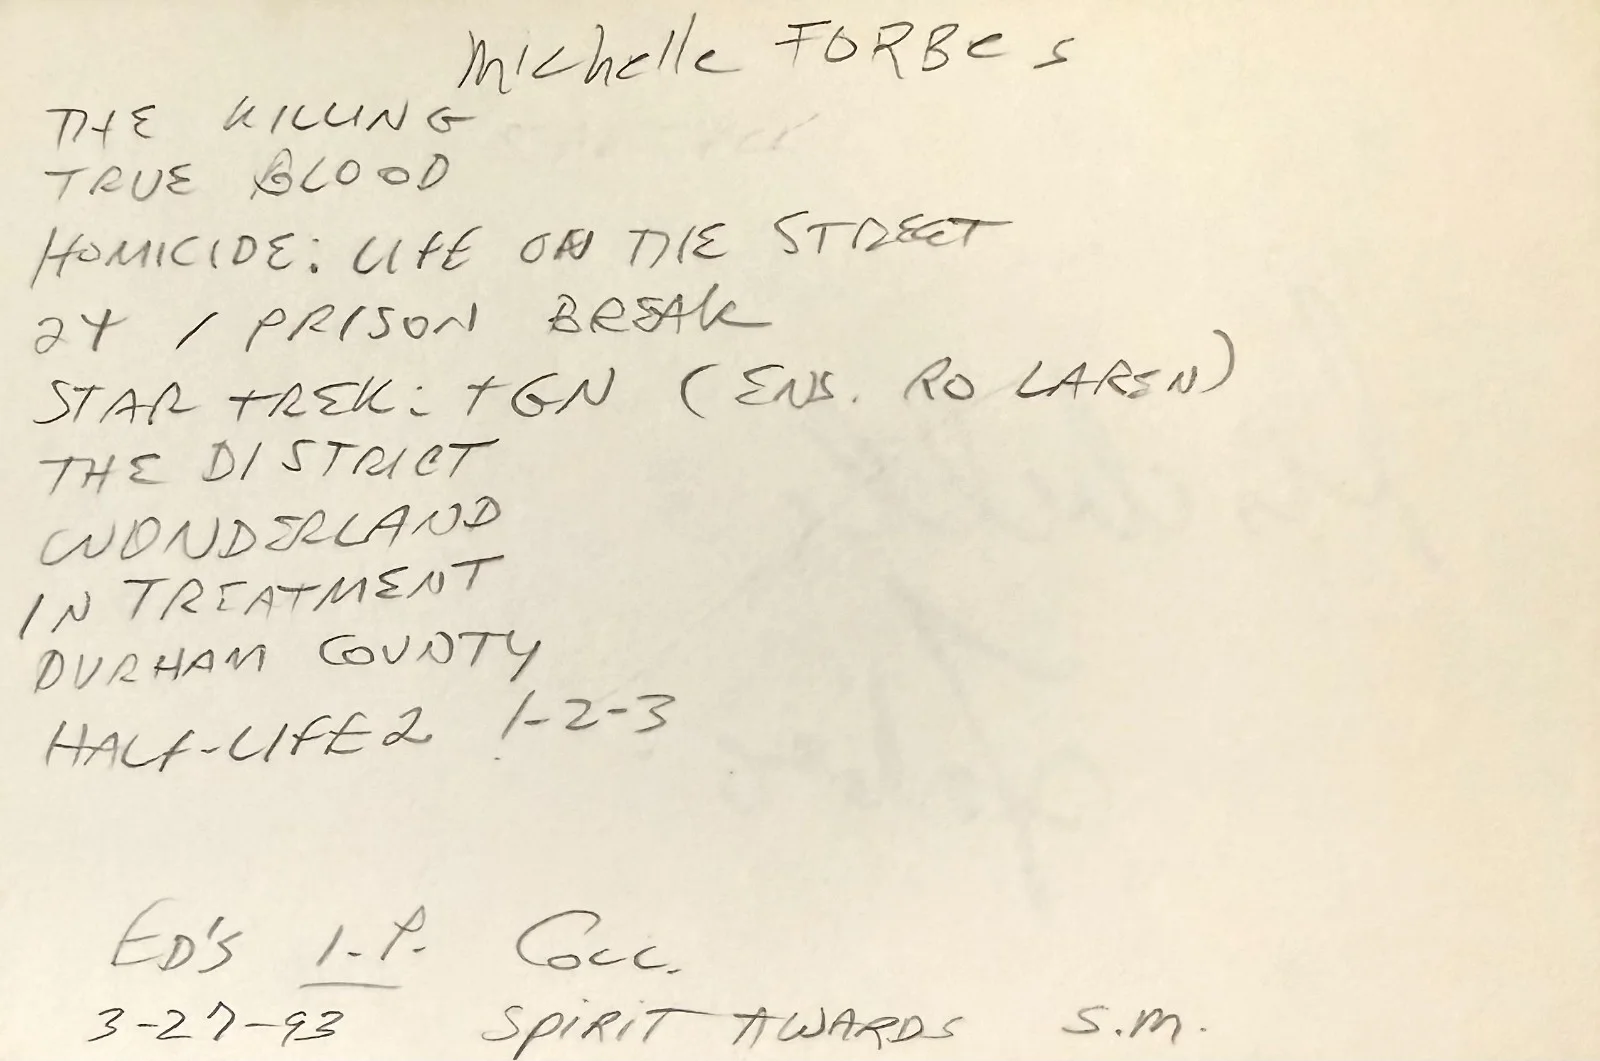 Michelle FORBes
THE KILLING
TRUE BLOOD
HOMICIDE: LIFE ON THE STREET
24 / PRISON BREAK
STAR TREK: TGN (ENS. RO LAREN)
THE DISTRICT
WONDERLAND
IN TREATMENT
DURHAM COUNTY
HALF-LIFE 2 1-2-3
ED'S I.P. COLL.
3-27-93 SPIRIT AWARDS S.M.